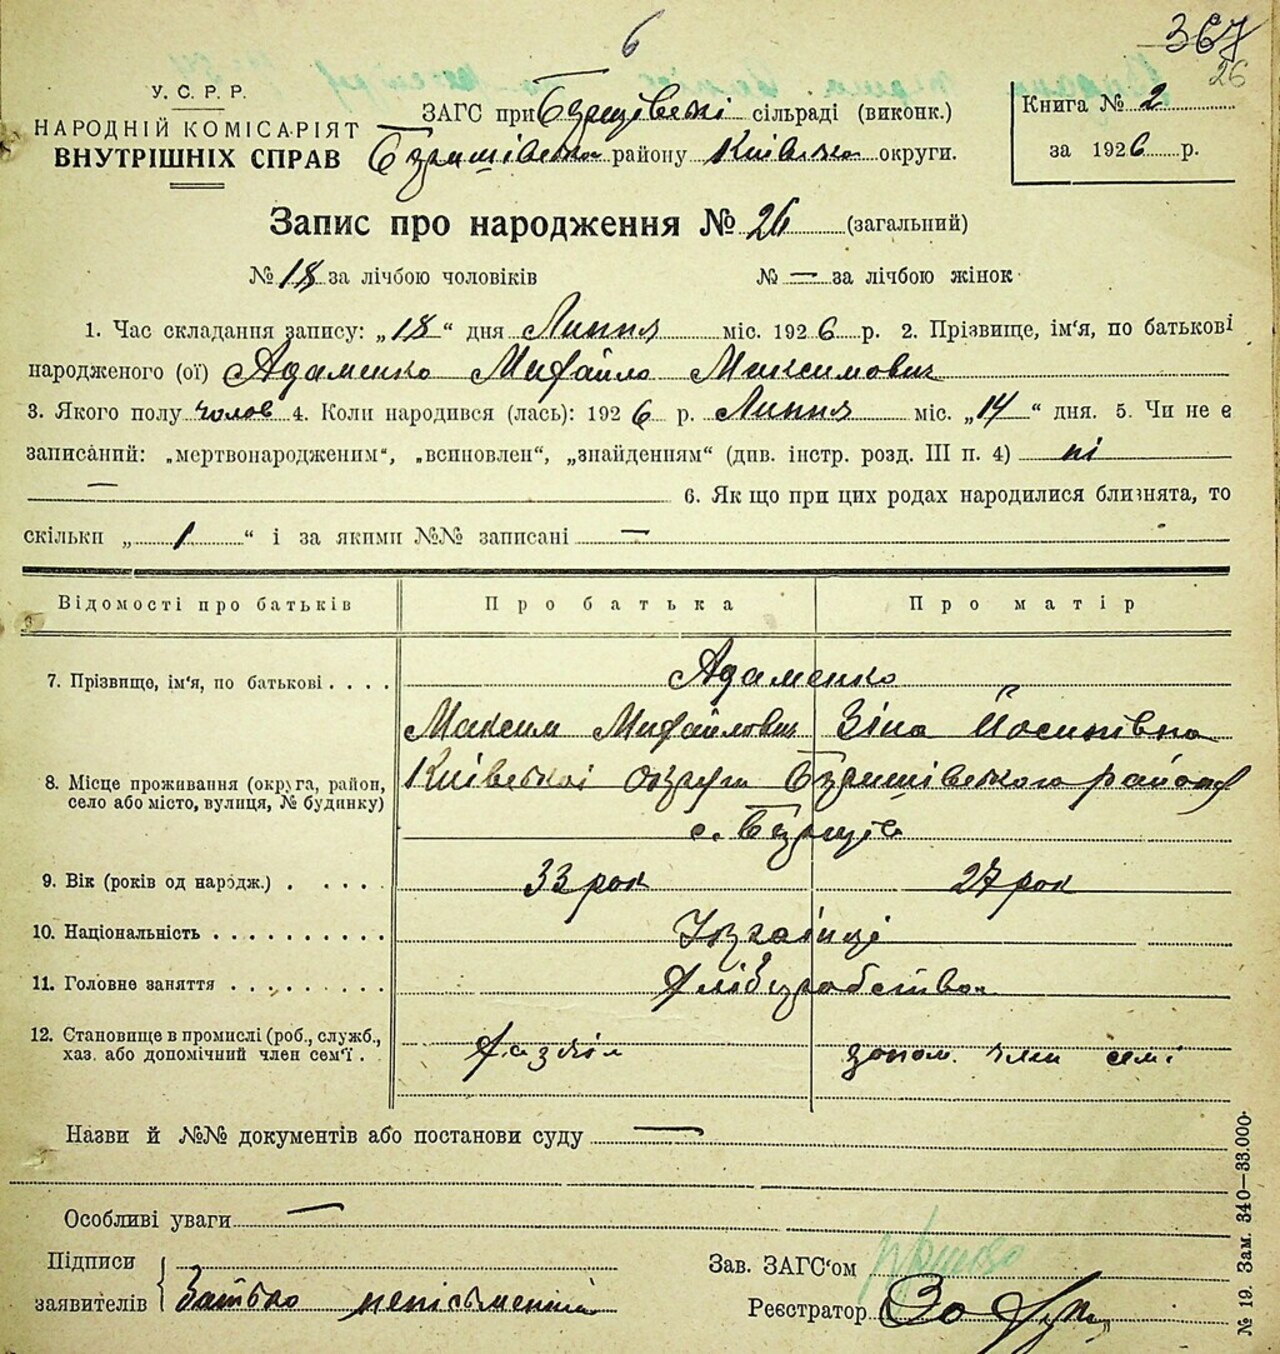 6
367
26
У. С. Р. Р.
НАРОДНІЙ КОМІСАРІЯТ
ВНУТРІШНІХ СПРАВ
ЗАГС при сільраді (виконк.)
району Київська округи.
Книга № 2
за 1926 р.
Запис про народження № 26 (загальний)
№ 18 за лічбою чоловіків № — за лічбою жінок
1. Час складання запису: „18“ дня Липня міс. 1926 р. 2. Прізвище, ім‘я, по батькові
народженого (ої) Адаменко Михайло Максимович
3. Якого полу чолов 4. Коли народився (лась): 1926 р. Липня міс. „14“ дня. 5. Чи не є
записаний: „мертвонародженим“, „всиновлен“, „знайденням“ (див. інстр. розд. III п. 4) ні
— 6. Як що при цих родах народилися близнята, то
скільки „1“ і за якими №№ записані —
Відомості про батьків Про батька Про матір
7. Прізвище, ім‘я, по батькові . . . . Адаменко
Максим Михайлович Зіна Йосипівна
8. Місце проживання (округа, район,
село або місто, вулиця, № будинку)
Київської округи району
с.
9. Вік (років од народж.) . . . . . 33 рок 27 рок
10. Національність . . . . . . . . . . Українці
11. Головне заняття . . . . . . . . . Хліборобство
12. Становище в промислі (роб., служб.,
хаз. або допомічний член сем‘ї . .
хазяїн допом. член семі
Назви й №№ документів або постанови суду —
Особливі уваги —
Підписи
заявителів Батько неписьменний
Зав. ЗАГС‘ом
Реєстратор
№ 19. Зам. 340—33.000